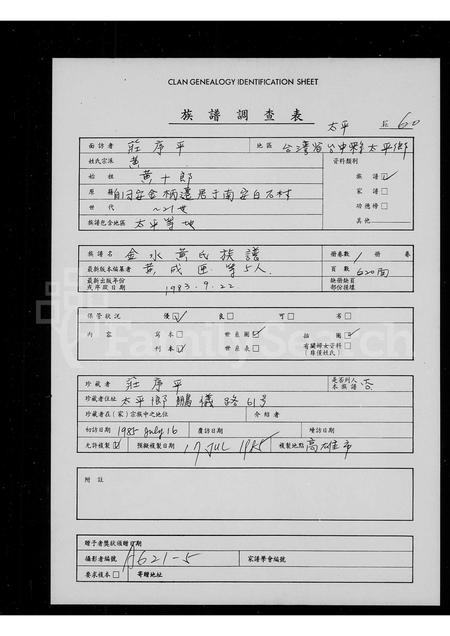 CLAN GENEALOGY IDENTIFICATION SHEET
族譜調查表
太平 丘 60
面訪者 莊序平 地區 台灣省台中縣太平鄉
姓氏宗派 黃 資料類別
始祖 黃十郎 族譜 ☑
原籍 自同安金柄遷居于南安白石村 家譜 □
世代 ~21世 功德榜 □
族譜包含地區 太平等地 其他
族譜名 金水黃氏族譜 冊卷數 1 冊 卷
最新版本編纂者 黃成 等5人 頁數 620面
最新出版年份或序跋日期 1983.9.22 缺冊缺頁部份接據
保管狀況 優 ☑ 良 □ 可 □ 劣 □
內容 寫本 □ 世系圖 ☑ 插圖 ☑
刊本 ☑ 世系表 □ 有關婦女資料(非僅姓氏) □
FamilySearch
珍藏者 莊序平 是否列入本族譜 否
珍藏者住址 太平鄉鵬儀路61号
珍藏者在(家)宗族中之地位 介紹者
初訪日期 1985 July 16 覆訪日期 增訪日期
允許複製 ☑ 預擬複製日期 17 JUL 1985 複製地點 高雄市
附註
贈予者獎狀頒贈日期
攝影者編號 A621-5 家譜學會編號
要求複本 □ 寄贈地址